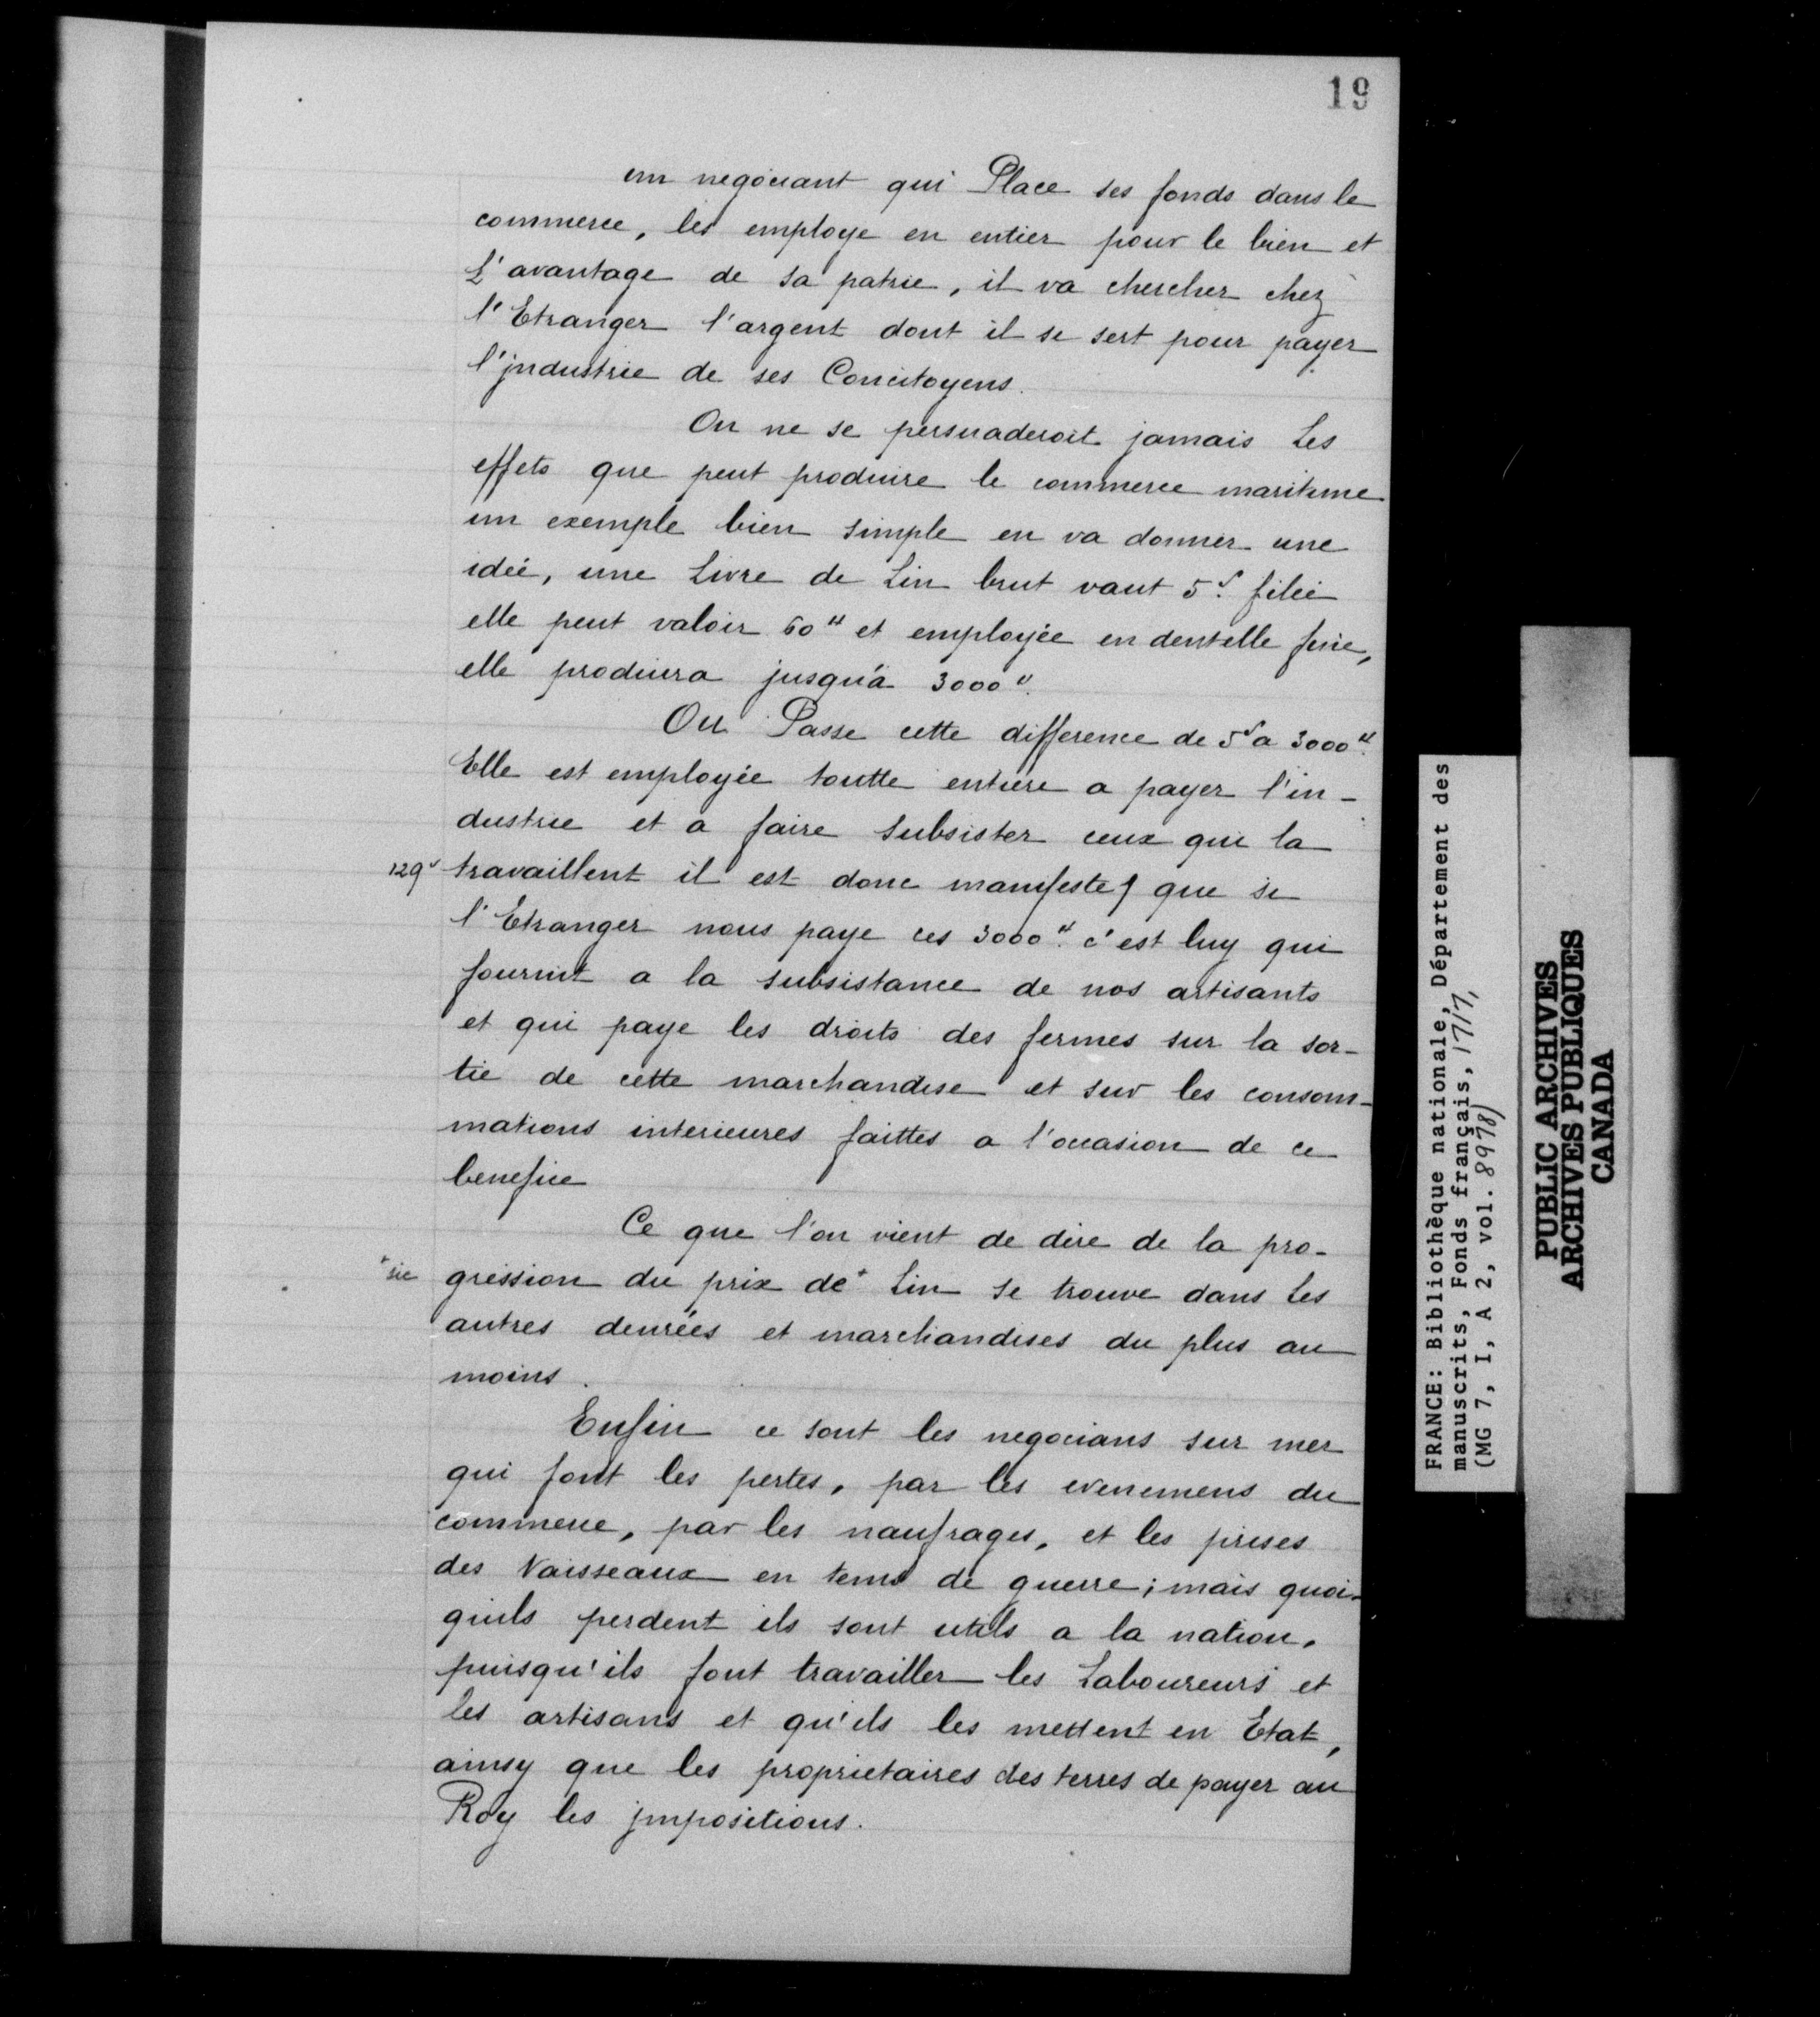 19
un negociant qui Place ses fonds dans le
commerce, les employe en entier pour le bien et
L'avantage de sa patrie, il va chercher chez
l'Etranger l'argent dont il se sert pour payer
l'jndustrie de ses Concitoyens.
On ne se persuaderoit jamais Les
effets que peut produire le commerce maritime
un exemple bien simple en va donner une
idée, une Livre de Lin brut vaut 5ˢ. filée
elle peut valoir 60ᵗᵗ et employée en dentelle fine,
elle produira jusqu'à 3000ᵗᵗ.
Ou Passe cette difference de 5ˢ a 3000ᵗᵗ.
Elle est employée toutte entiere a payer l'in-
dustrie et a faire subsister ceux qui la
129ᵛ travaillent il est donc manifeste / que si
l'Etranger nous paye ces 3000ᵗᵗ. c'est luy qui
fournit a la subsistance de nos artisants
et qui paye les droits des fermes sur la sor-
tie de cette marchandise et sur les consom-
mations interieures faittes a l'occasion de ce
benefice
Ce que l'on vient de dire de la pro-
+sic gression du prix de+ Lin se trouve dans Les
autres denrées et marchandises du plus au
moins.
Enfin ce sont les negocians sur mer
qui font les pertes, par les evenemens du
commerce, par les naufrages, et les prises
des Vaisseaux en tems de guerre; mais quoi-
quils perdent ils sont utils a la nation,
puisqu'ils font travailler les Laboureurs et
les artisans et qu'ils les mettent en Etat,
ainsy que les proprietaires des terres de payer au
Roy les jmpositions.
FRANCE: Bibliothèque nationale, Département des
manuscrits, Fonds français, 1717,
(MG 7, I, A 2, vol. 8978)
PUBLIC ARCHIVES
ARCHIVES PUBLIQUES
CANADA